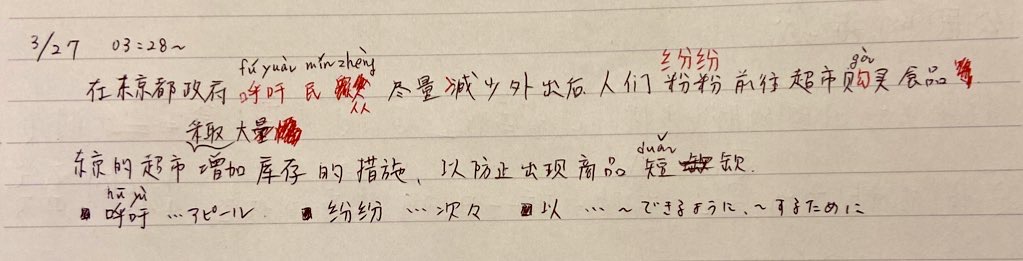 3/27 03:28~
fú yuàn mín zhèng
纷纷
gòu
在东京都政府呼吁民众尽量减少外出后人们粉粉前往超市购买食品
采取大量
duǎn
东京的超市增加库存的措施、以防止出现商品短缺.
hū yù
呼吁…アピール 纷纷…次々 以…~できるように、~するために